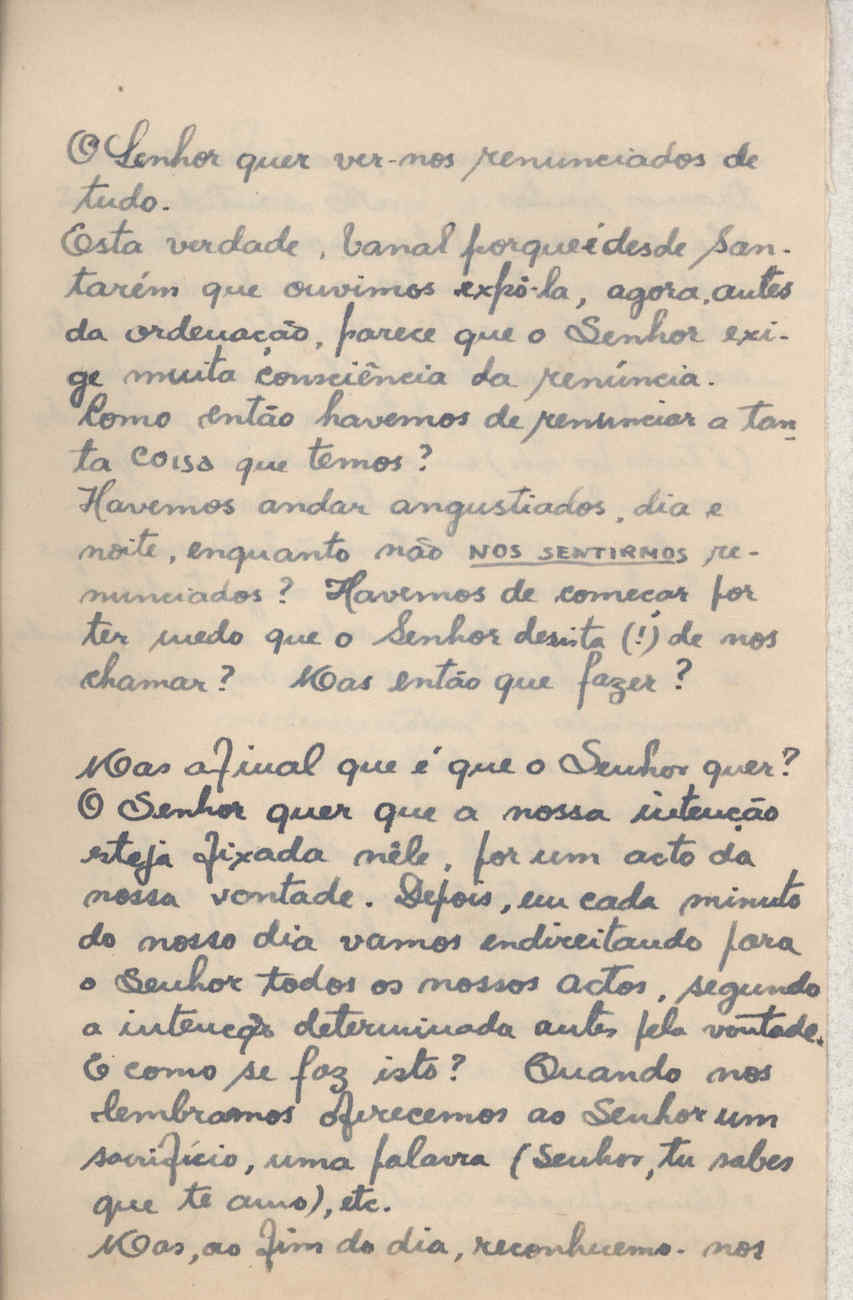 O Senhor quer ver-nos renunciados de
tudo.
Esta verdade, banal porque é desde San-
tarém que ouvimos expô-la, agora, antes
da ordenação, parece que o Senhor exi-
ge muita consciência da renúncia.
Como então havemos de renunciar a tan-
ta coisa que temos?
Havemos andar angustiados, dia e
noite, enquanto não NOS SENTIRMOS re-
nunciados? Havemos de começar por
ter medo que o Senhor desista (!) de nos
chamar? Mas então que fazer?
Mas afinal que é que o Senhor quer?
O Senhor quer que a nossa intenção
esteja fixada nêle, por um acto da
nossa vontade. Depois, em cada minuto
do nosso dia vamos endireitando para
o Senhor todos os nossos actos, segundo
a intenção determinada antes pela vontade.
E como se faz isto? Quando nos
lembramos oferecemos ao Senhor um
sacrifício, uma palavra (Senhor, tu sabes
que te amo), etc.
Mas, ao fim do dia, reconhecemo-nos